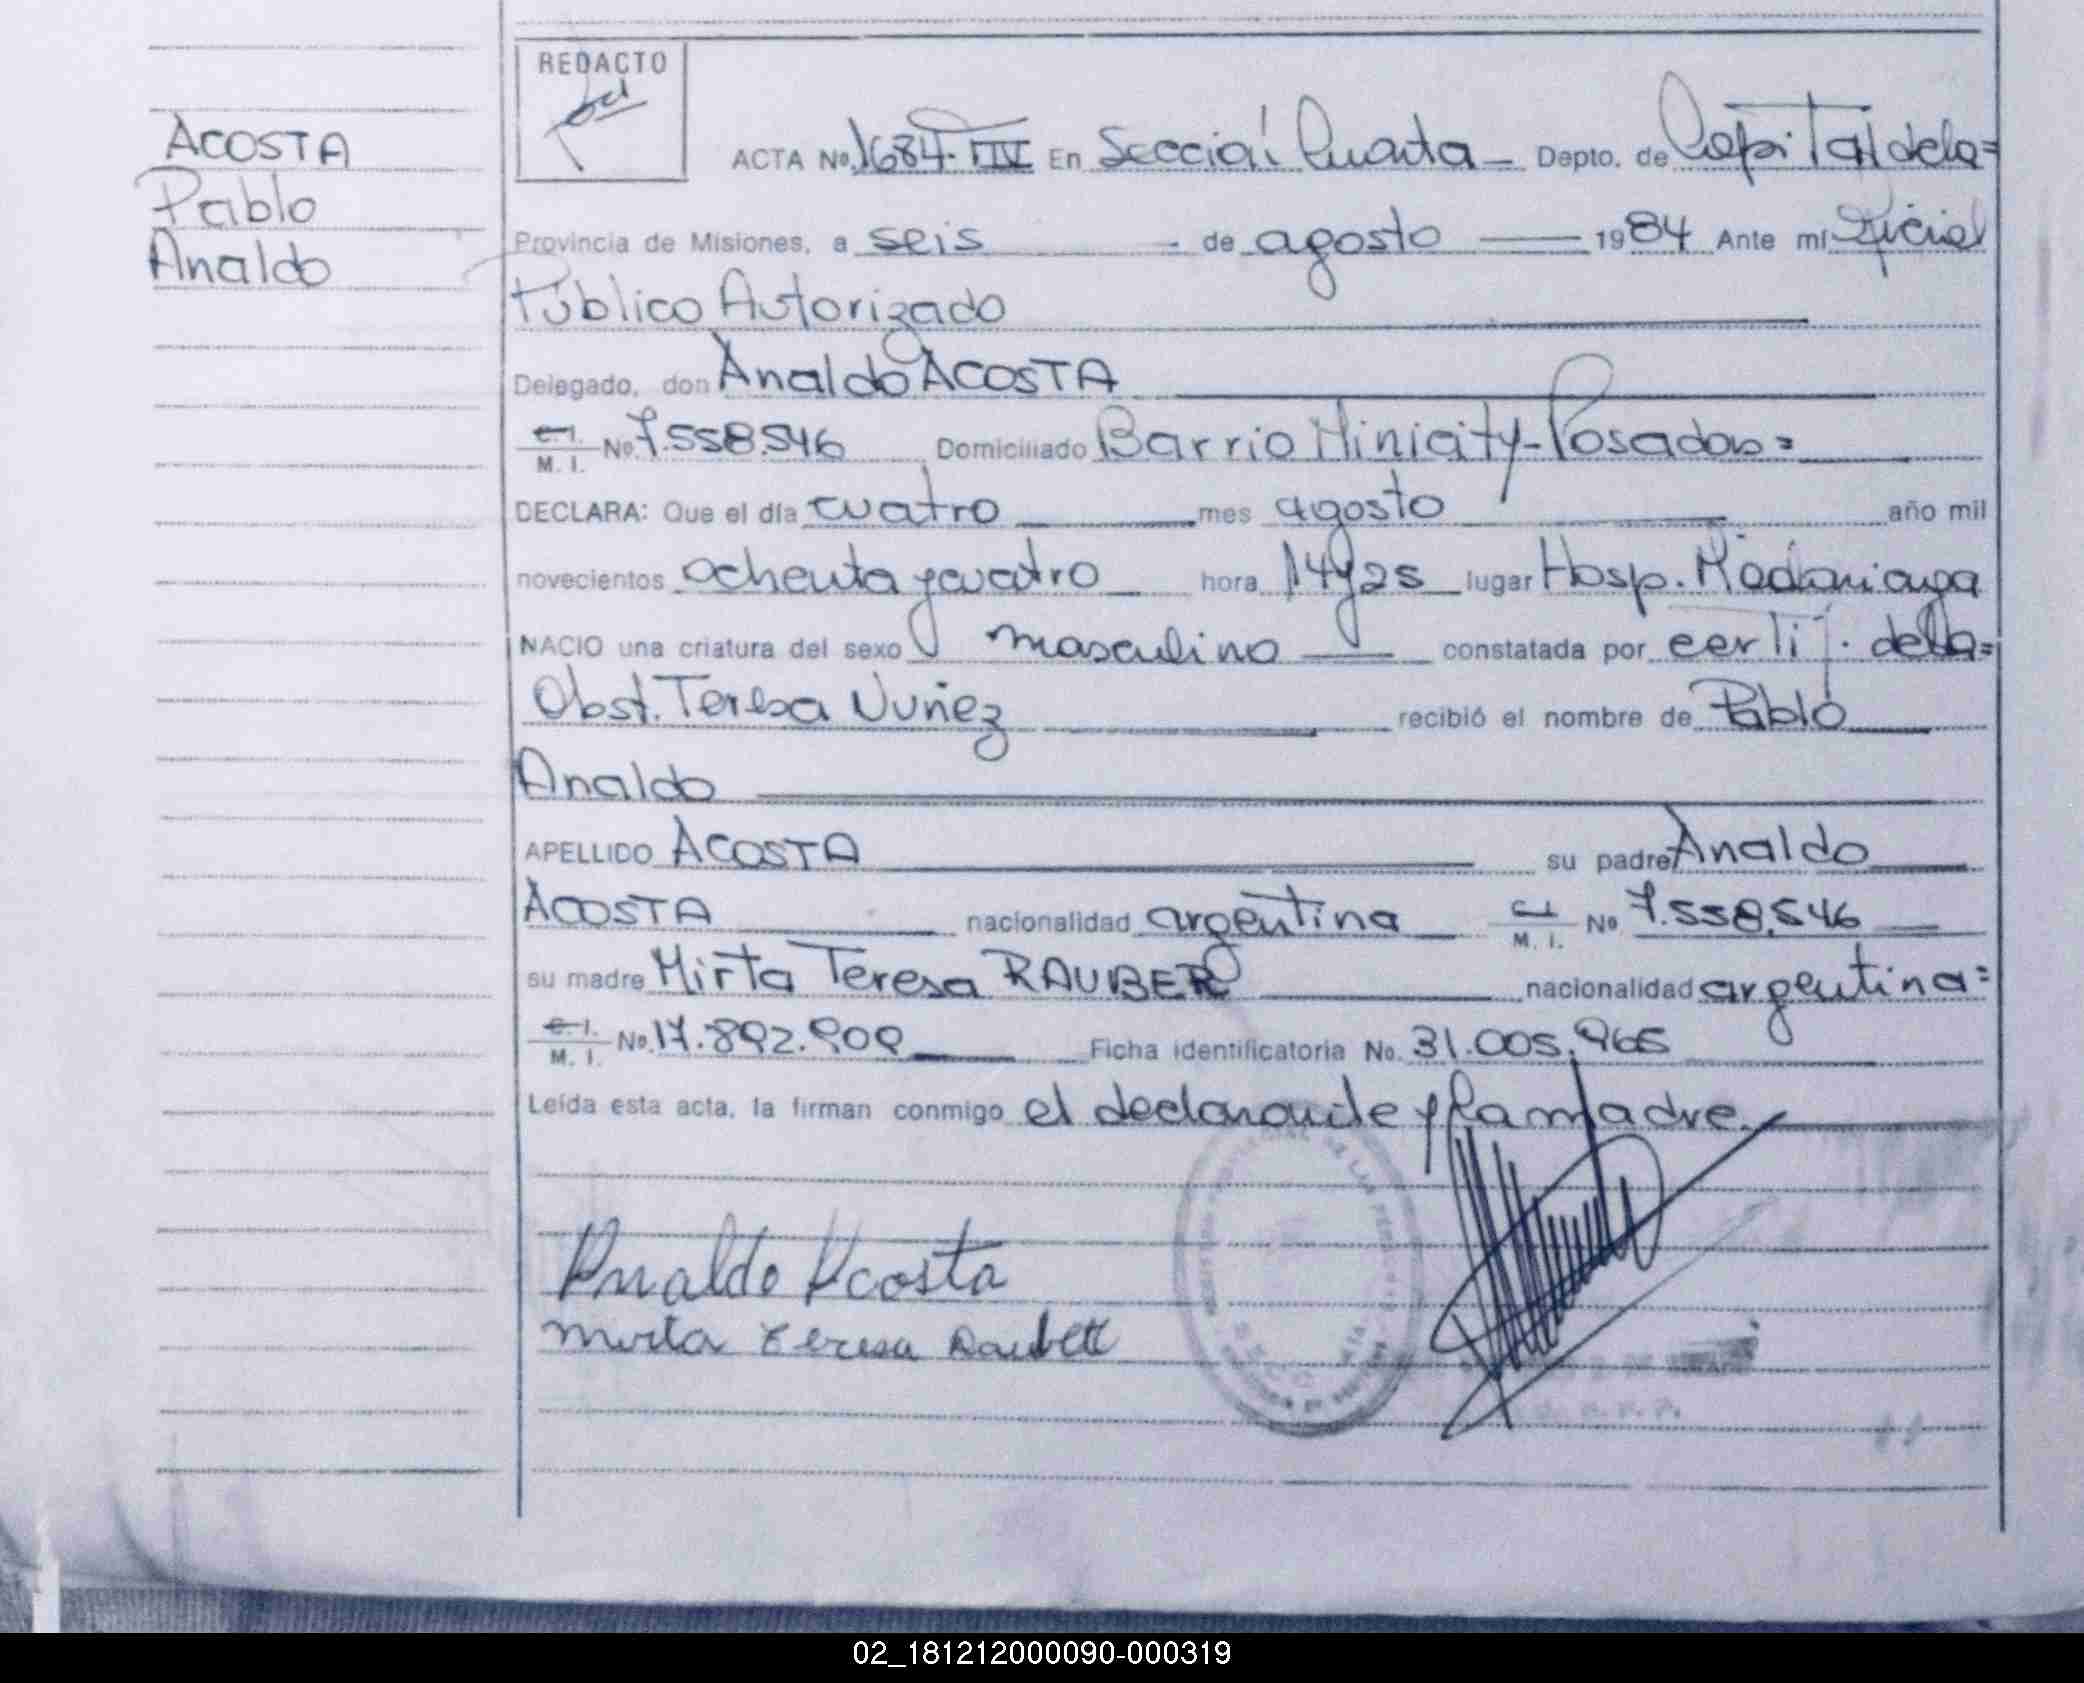 REDACTO
ACOSTA
Pablo
Analdo
ACTA No. 1684-TIV En Sección Cuarta - Depto. de Capital de la=
Provincia de Misiones, a seis de agosto 1984 Ante mí Oficial
Público Autorizado
Delegado, don Analdo ACOSTA
C.I. M. I. No. 7.558.546 Domiciliado Barrio Minicity-Posadas=
DECLARA: Que el día cuatro mes agosto año mil
novecientos ochenta y cuatro hora 14y25 lugar Hosp. Madariaga
NACIO una criatura del sexo masculino constatada por certif. de la=
Obst. Teresa Nuñez recibió el nombre de Pablo
Analdo
APELLIDO ACOSTA su padre Analdo
ACOSTA nacionalidad argentina C.I. M. I. No 7.558.546
su madre Mirta Teresa RAUBER nacionalidad argentina=
C.I. M. I. No. 17.892.909 Ficha identificatoria No. 31.005.965
Leída esta acta, la firman conmigo el declarante y la madre.
Analdo Acosta
Mirta Teresa Raubert
02_181212000090-000319